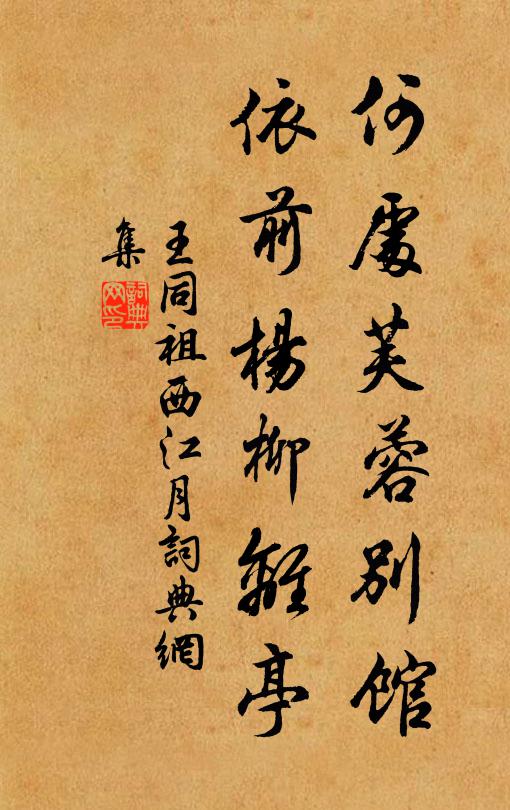 何處芙蓉別館
依前楊柳離亭
王同祖西江月詞典網
集
詞典網印